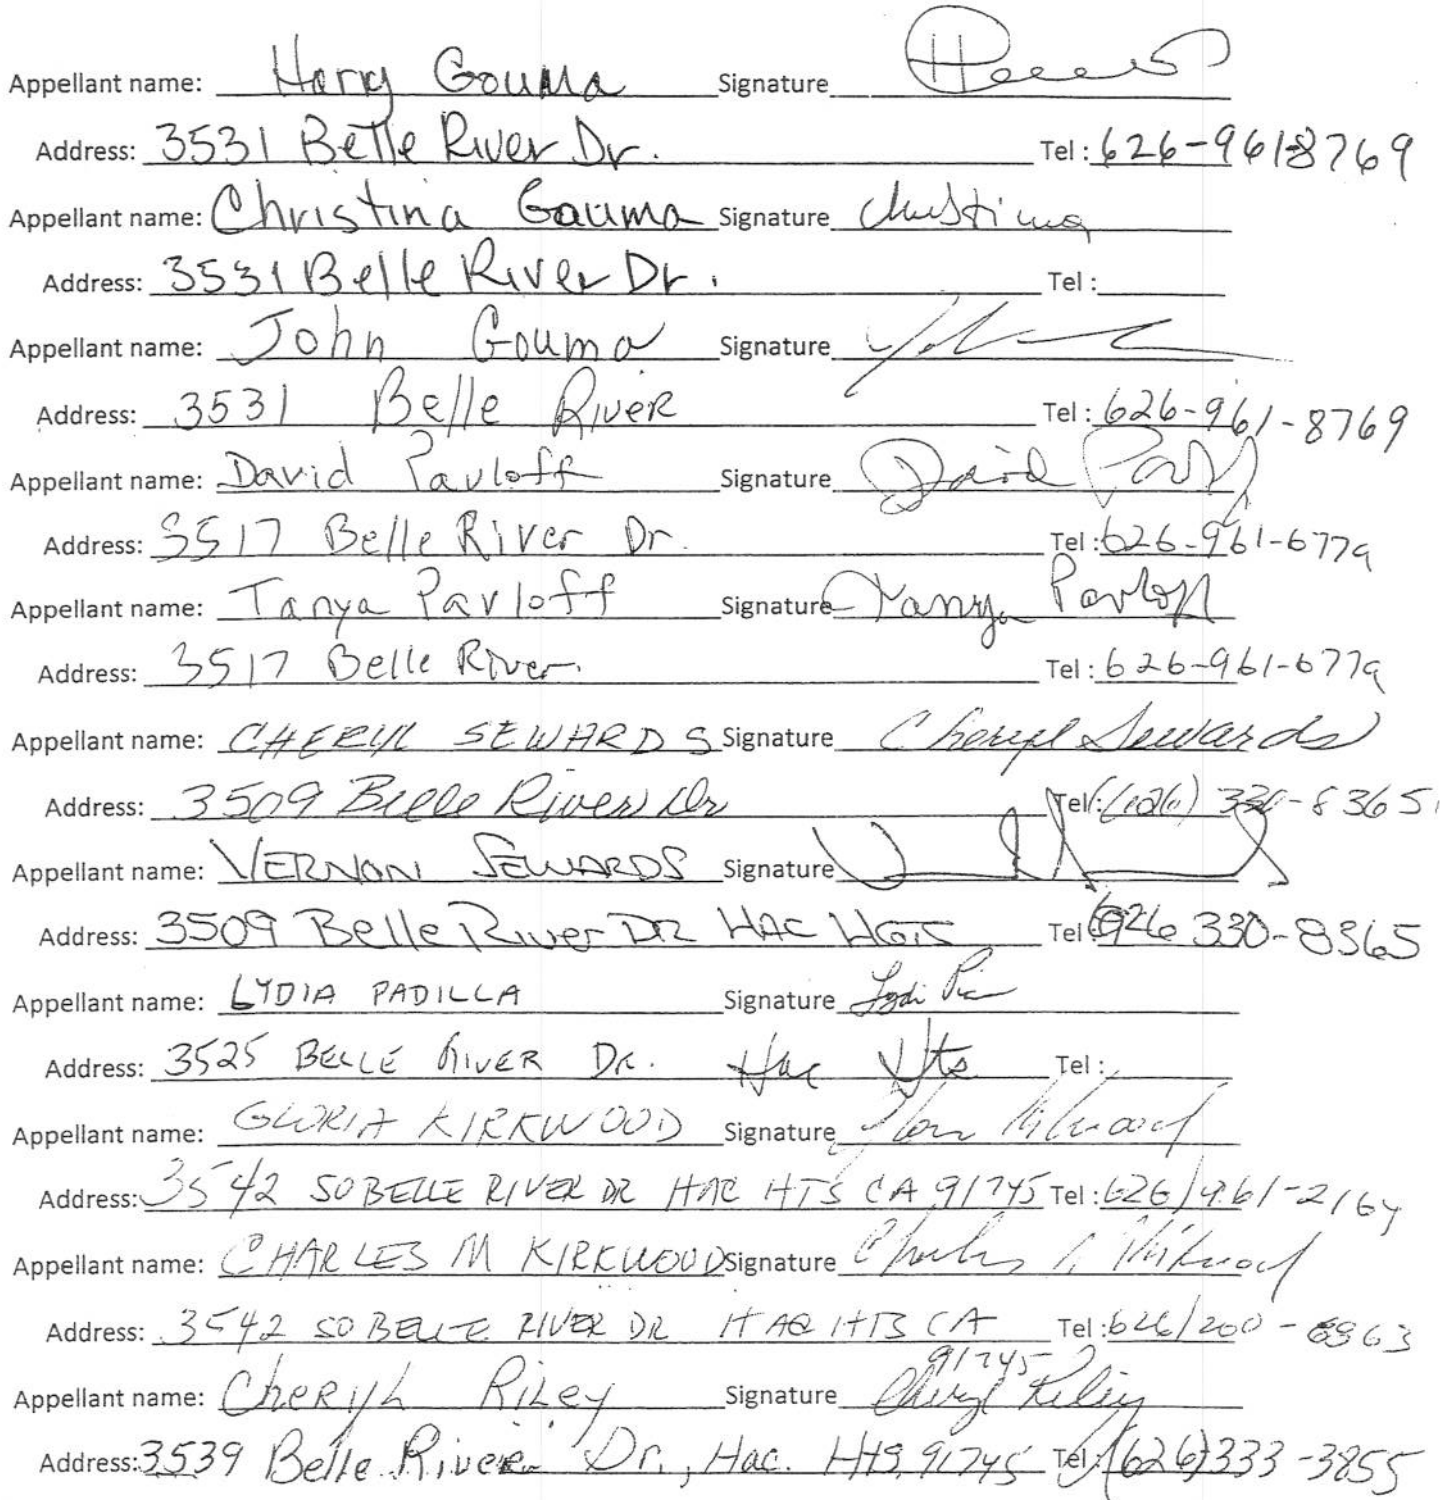 Appellant name: Harry Gouma Signature
Address: 3531 Belle River Dr. Tel : 626-961-8769
Appellant name: Christina Gouma Signature Christina
Address: 3531 Belle River Dr. Tel :
Appellant name: John Gouma Signature
Address: 3531 Belle River Tel : 626-961-8769
Appellant name: David Pavloff Signature David
Address: 3517 Belle River Dr. Tel : 626-961-6779
Appellant name: Tanya Pavloff Signature Tanya Pavloff
Address: 3517 Belle River. Tel : 626-961-6779
Appellant name: CHERYL SEWARDS Signature Cheryl Sewards
Address: 3509 Belle River Dr Tel : (626) 330-8365
Appellant name: VERNON SEWARDS Signature
Address: 3509 Belle River DR HAC HGTS Tel 626 330-8365
Appellant name: LYDIA PADILLA Signature
Address: 3525 BELLE RIVER DR. Hac Hts Tel :
Appellant name: GLORIA KIRKWOOD Signature
Address: 3542 SO BELLE RIVER DR HAC HTS CA 91745 Tel : 626/961-2164
Appellant name: CHARLES M KIRKWOOD Signature
Address: 3542 SO BELLE RIVER DR HAC HTS CA Tel : 626/200-
91745
Appellant name: Cheryl Riley Signature Cheryl Riley
Address: 3539 Belle River Dr., Hac. Hts. 91745 Tel : (626) 333-3855